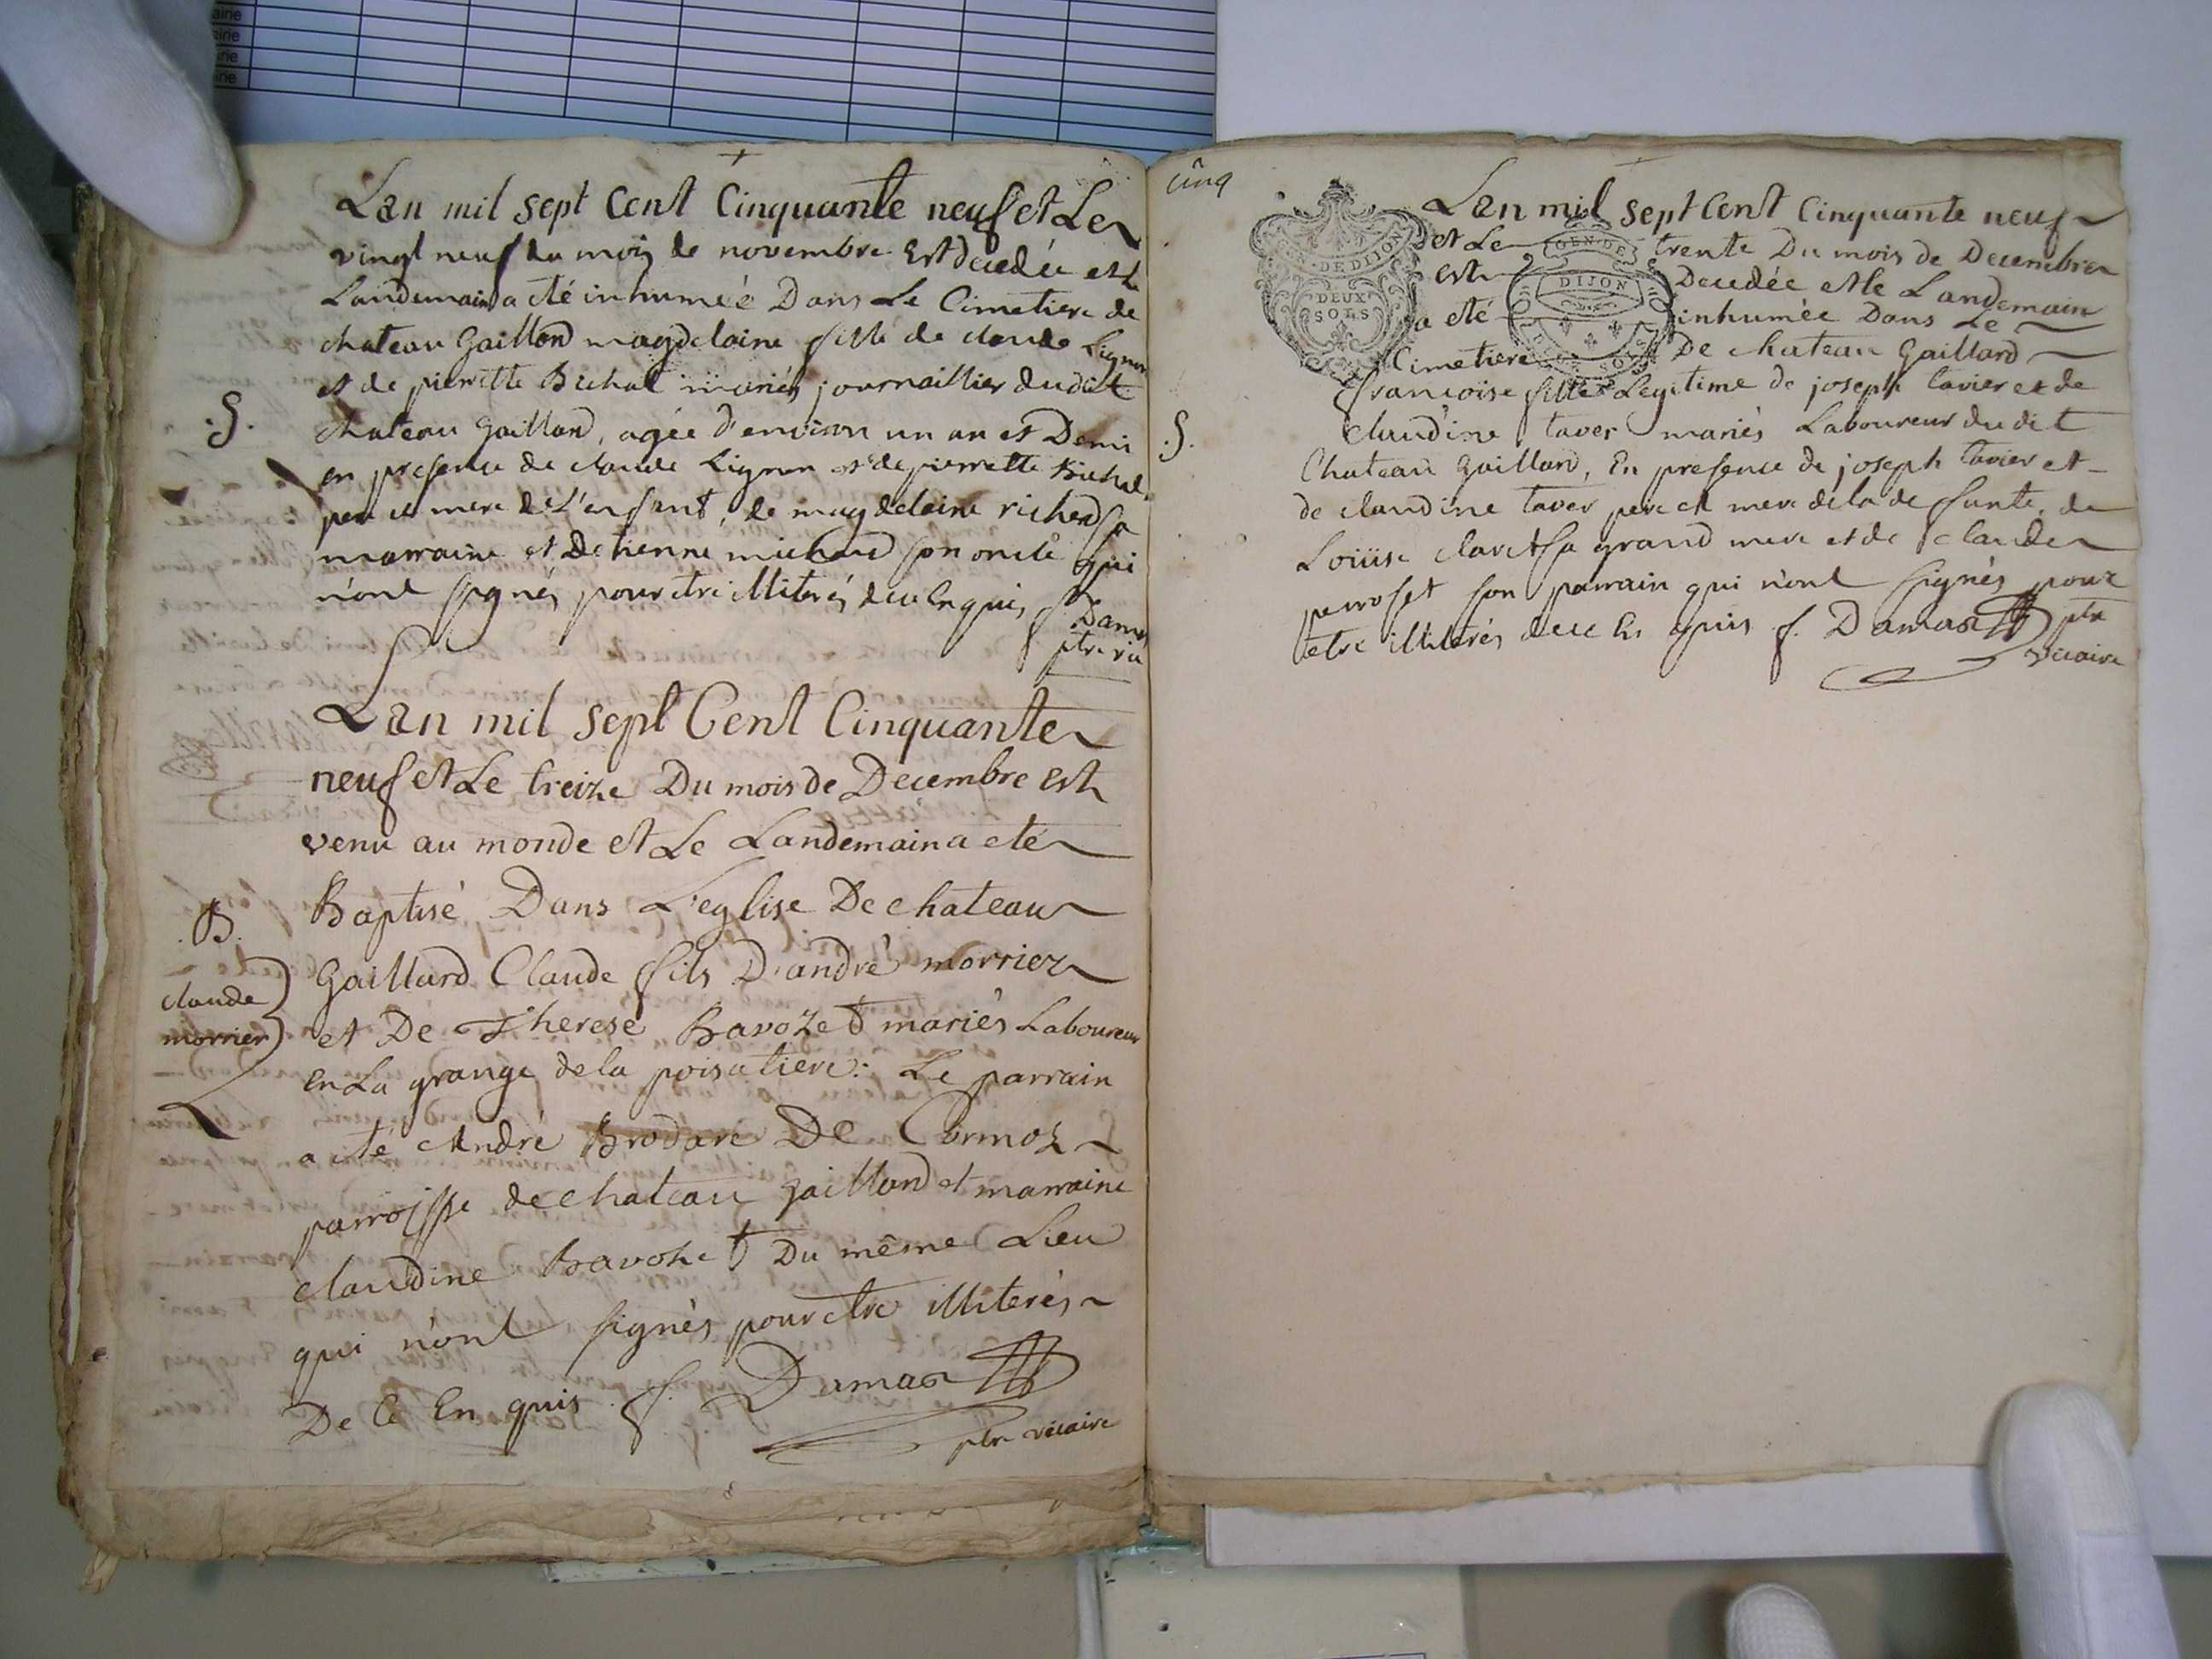 Lan mil sept Cent Cinquante neuf et Le
vingt neuf du mois de novembre Est decedée et le
Landemain a eté inhumée Dans Le Cimetiere de
chateau Gaillard magdelaine fille de claude Lignon
et de pierrette Buchal mariés journaillier dudit
.S.
chateau Gaillard, agée d'environ un an et Demi
en presence de claude Lignon et de pierrette Buchal
pere et mere de L'enfant, de magdelaine richard sa
marraine et Detienne michard son oncle qui
n'ont signés pour etre illiterés de ce Enquis f. Damas
ptre vic
Lan mil sept Cent Cinquante
neuf et Le treize Du mois de Decembre est
venu au monde et Le Landemain a eté
.B.
Baptisé Dans L'eglise De chateau
claude
morrier
Gaillard Claude fils D'andré morrier
et De Therese Bavozet mariés Laboureur
En La grange de la poisatiere: Le parrain
a eté André Brodare De Cormoz
parroisse de chateau Gaillard et marraine
claudine Bavozet Du même Lieu
qui n'ont signés pour etre illiterés
De Ce En quis f. Damas
ptre vicaire
cinq
Lan mil sept Cent Cinquante neuf
et Le trente Du mois de Decembre
est Decedée et le Landemain
a eté inhumée Dans Le
Cimetiere De chateau Gaillard
GEN. DE DIJON
DEUX
SOLS
GEN. DE
DIJON
francoise fille Legitime de joseph tavier et de
.S.
claudine taver mariés Laboureur du dit
Chateau Gaillard, En presence de joseph tavier et
de claudine taver pere et mere de la defunte, de
Loüise claret sa grand mere et de claude
perroset son parrain qui n'ont signés pour
etre illiterés de ce En quis f. Damas ptre
vicaire